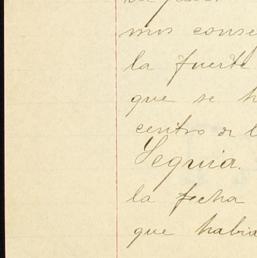 mos conse
la fuerte
que se h
centro de l
Sequia.
la fecha
que habia